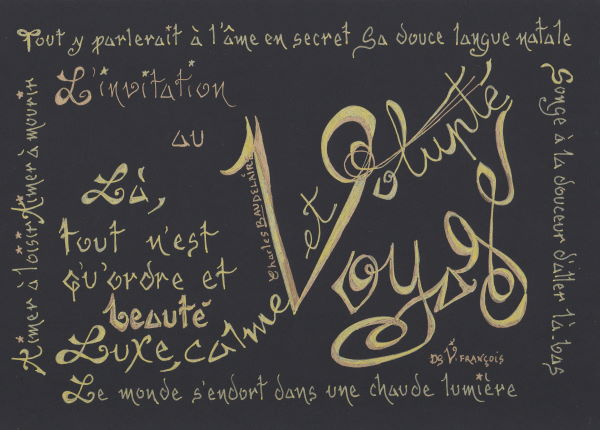 Tout y parlerait à l'âme en secret Sa douce langue natale
L'invitation
au
Voyage
Charles Baudelaire
Là,
tout n'est
qu'ordre et
beauté
Luxe, calme
et Volupté
Aimer à loisir Aimer à mourir
Songe à la douceur d'aller là-bas
Ds V. FRANÇOIS
Le monde s'endort dans une chaude lumière